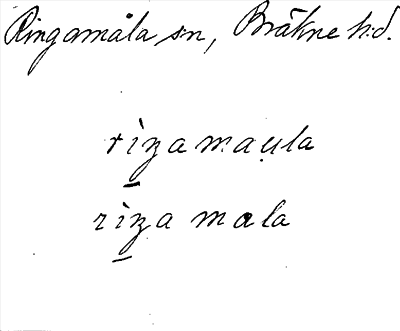 Ringamåla sn, Bräkne h:d.
rìŋa mau̯la
rìŋa mala